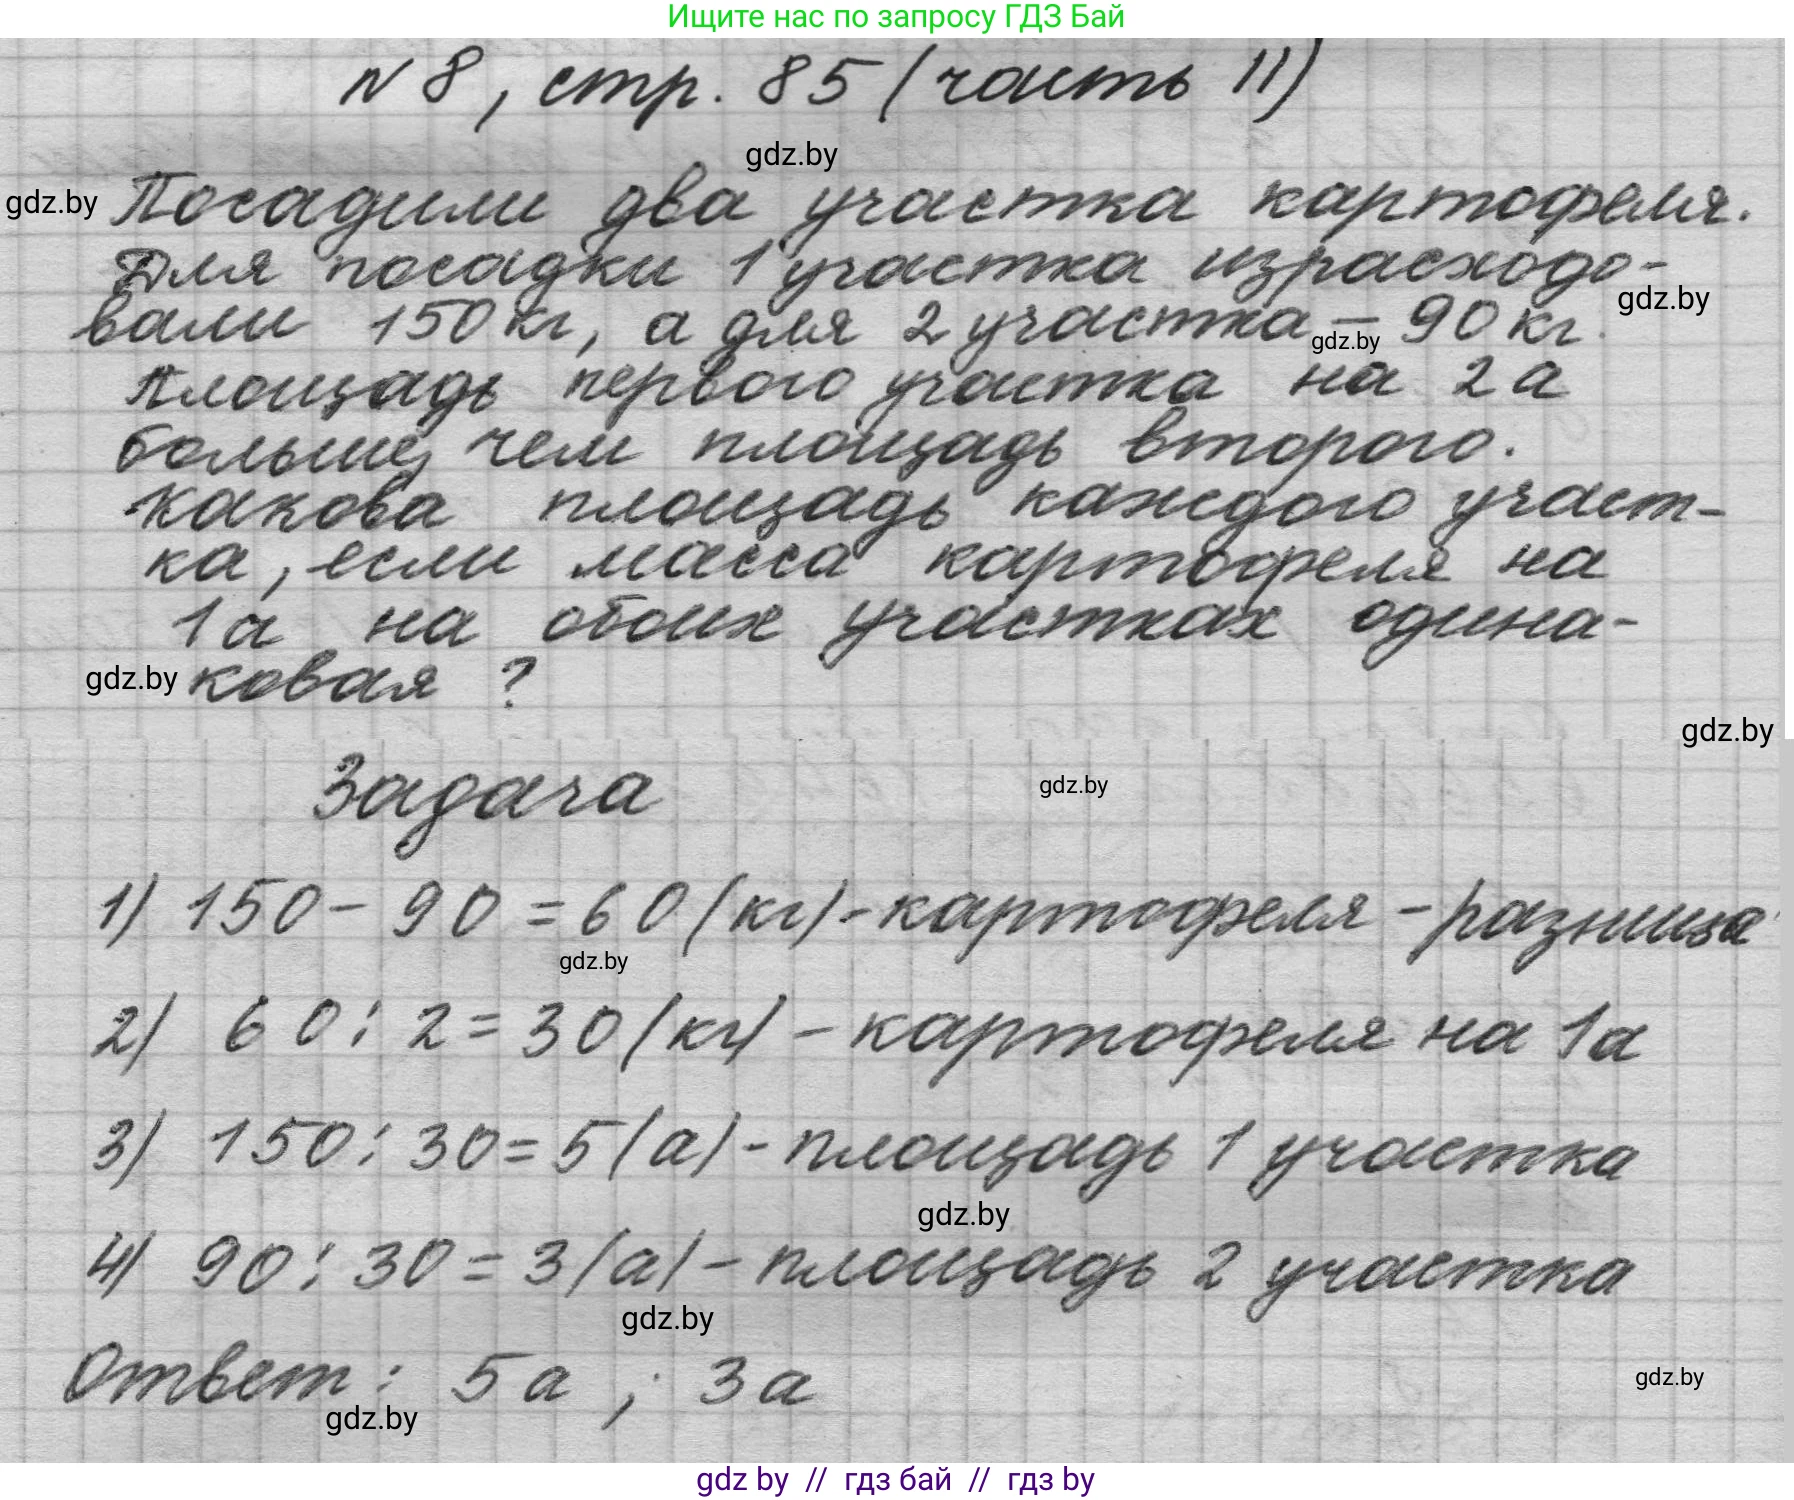 Ищите нас по запросу ГДЗ Бай
N 8, стр. 85 (часть II)
gdz.by
gdz.by
Посадили два участка картофеля.
Для посадки 1 участка израсходо-
gdz.by
вали 150 кг, а для 2 участка – 90 кг.
gdz.by
Площадь первого участка на 2 а
больше, чем площадь второго.
Какова площадь каждого участ-
ка, если масса картофеля на
1 а на обоих участках одина-
gdz.by
ковая ?
gdz.by
Задача
gdz.by
1) 150 - 90 = 60 (кг) - картофеля - разница
gdz.by
2) 60 : 2 = 30 (кг) - картофеля на 1а
3) 150 : 30 = 5 (а) - площадь 1 участка
gdz.by
4) 90 : 30 = 3 (а) - площадь 2 участка
gdz.by
Ответ: 5 а ; 3 а
gdz.by
gdz.by
gdz by // гдз бай // гдз by